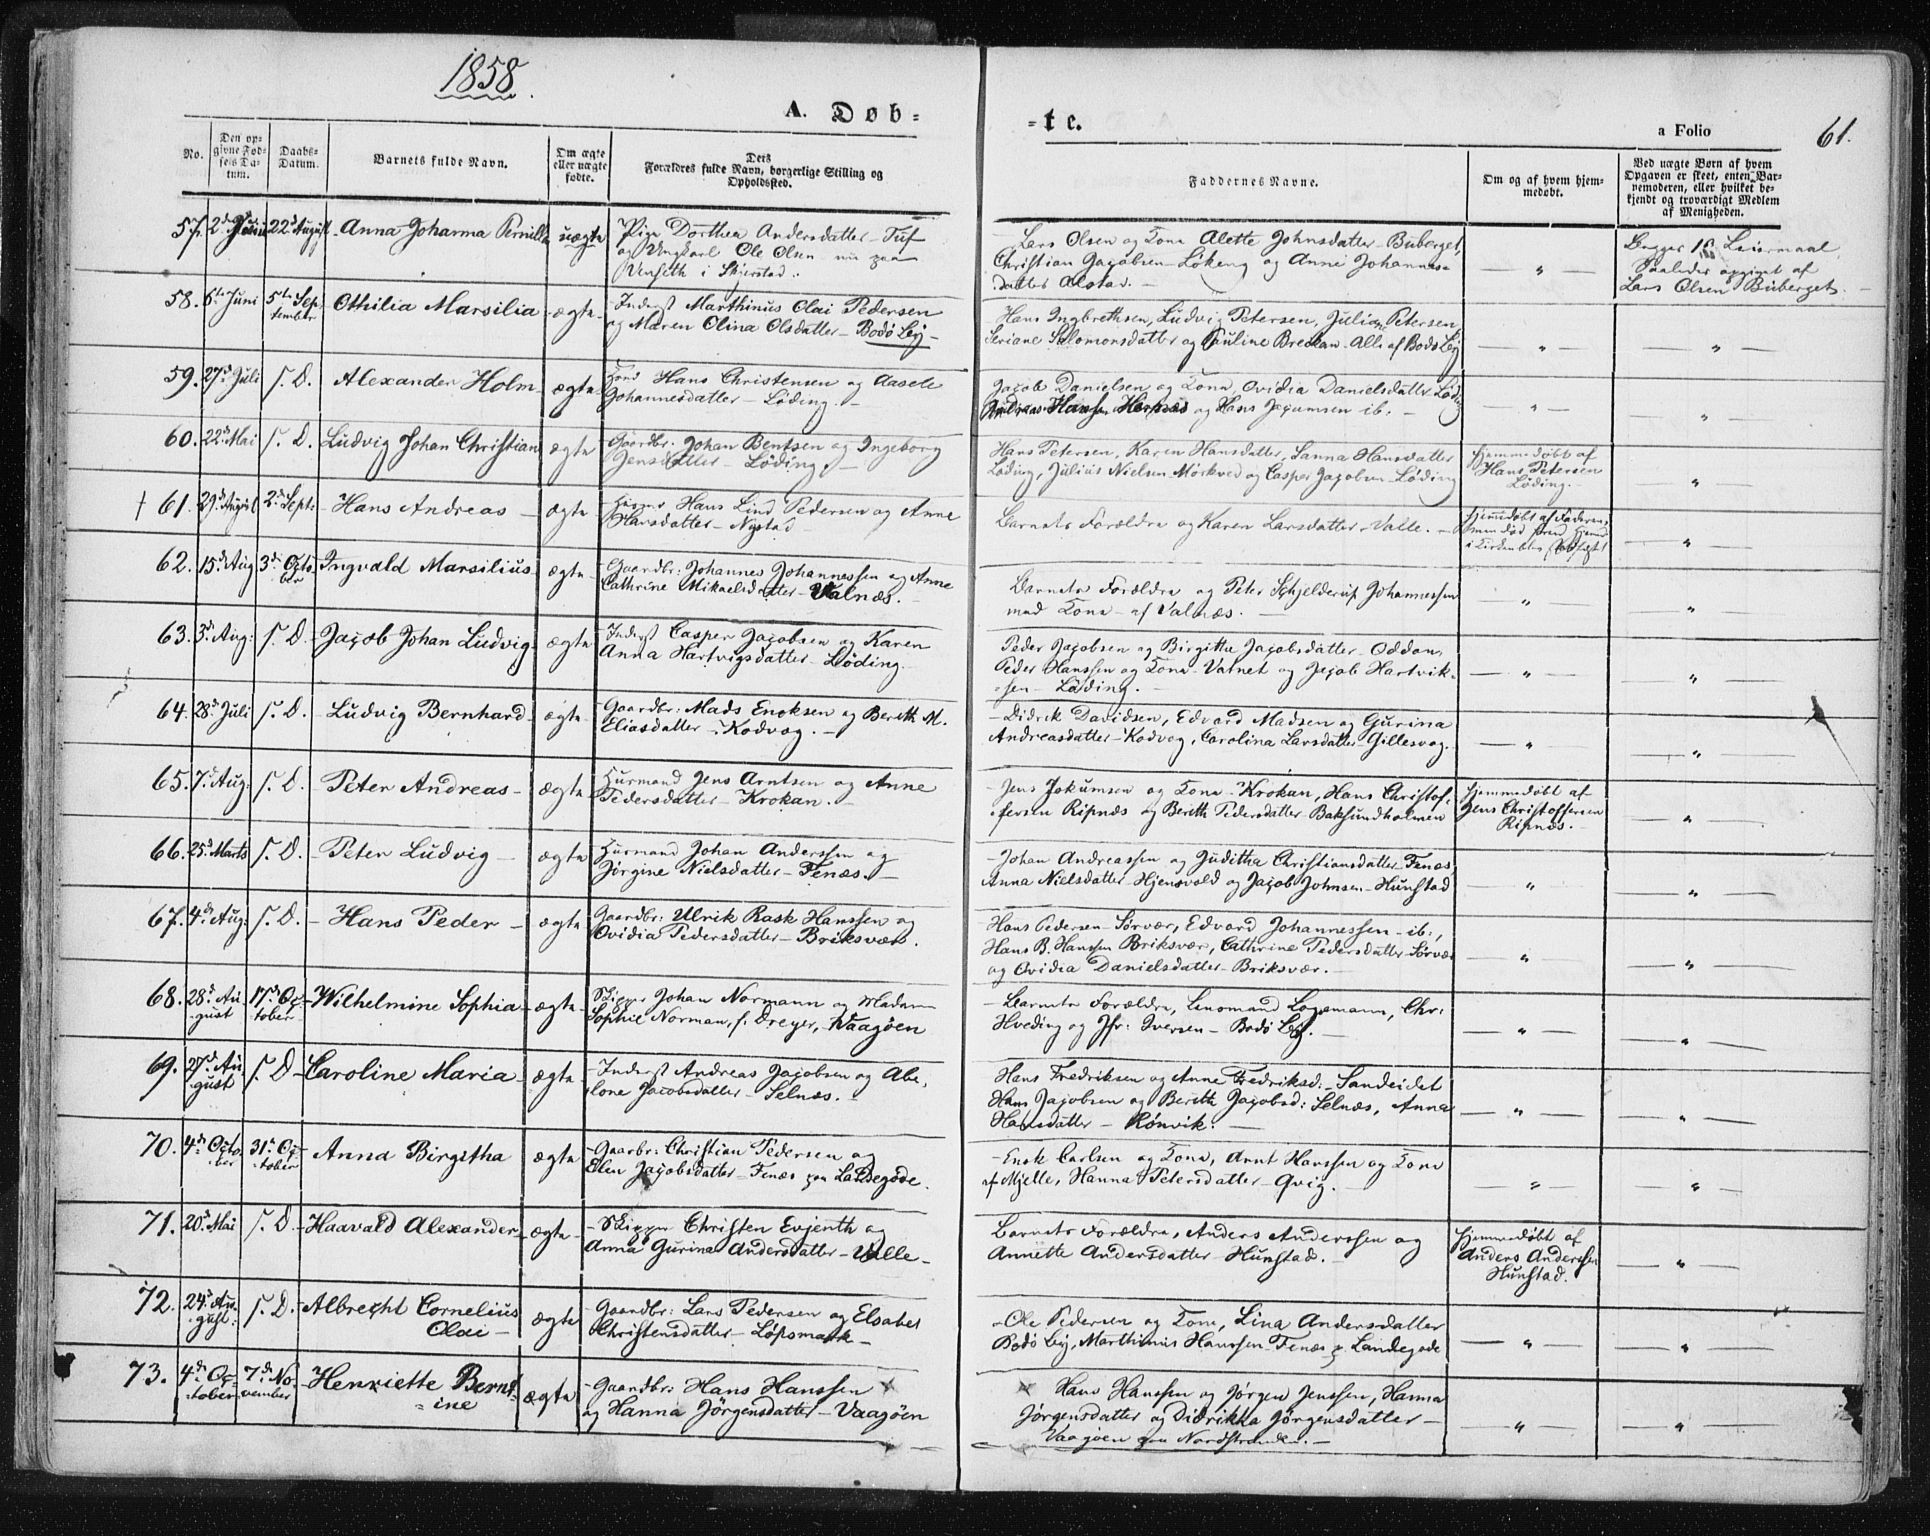 1858.
A. Døb-
-te.
a Folio
61.
No.
Den op-
givne Fød-
sels Da-
tum.
Daabs-
Datum.
Barnets fulde Navn.
Om ægte
eller uægte
fødte.
Ders
Forældres fulde Navn, borgerlige Stilling og
Opholdssted.
Faddernes Navne.
Om og af hvem hjem-
medøbt.
Ved uægte Børn af hvem
Opgaven er skeet, enten Bar-
nemoderen, eller hvilket be-
kjendt og troværdigt Medlem
af Menigheden.
57. 2d Juni 22d August Anna Johanna Pernilla uægte Pige Dorthea Andersdatter - Tuf
og Ungkarl Ole Olsen nu paa
Venseth i Skjerstad.
Lars Olsen og Kona Alette Johnsdatter - Buberget,
Christian Jacobsen Løkeng og Anne Johannes-
datter Alstad. -
Begges 1ste Leiermaal
Saaledes opgivet af
Lars Olsen Buberget. -
58. 6te Juni 5te Sep-
tember Othilia Marsilia ægte Inderst Marthinus Olai Pedersen
og Maren Olina Olsdatter - Bodø By -
Hans Ingbrethsen, Ludvig Petersen, Julian Petersen,
Seriane Salomonsdatter og Pauline Breckan - Alle af Bodø By
59. 27d Juli s. D. Alexander Holm ægte Hans Christensen og Aasele
Johannesdatter - Løding. -
Jacob Danielsen og Kona, Ovidia Danielsdatter Løding
Andreas Hansen Hernæs og Hans Jaqumsen ib. -
60. 22d Mai s. D. Ludvig Johan Christian ægte Gaardbr. Johan Bentsen og Ingeborg
Jensdatter - Løding. -
Hans Petersen, Karen Hansdatter, Sanna Hansdatter
Løding, Julius Nielsen Mørkved og Casper Jacobsen - Løding
Hjemmedøbt af
Hans Petersen
Løding. -
† 61. 29d August 2d Sept: - Hans Andreas - ægte Hans Lind Pedersen og Anne
Hansdatter - Nystad
Barnets Forældre og Karen Larsdatter - Valle. -
Hjemmedøbt af Faderen,
men død
62. 15d Aug 3de Octo-
ber Ingvald Marsilius ægte Gaardbr: Johannes Johannessen og Anne
Cathrine Mikaelsdatter - Valnæs. -
Barnets Forældre og Peter Schjelderup Johannessen
med Kona - af Valnæs. -
63. 3d Aug: s. D. Jacob Johan Ludvig ægte Inderst Casper Jacobsen og Karen
Anna Hartvigsdatter - Løding -
Peder Jacobsen og Birgitta Jacobsdatter - Oddan,
Peder Hanssen og Kona - Vatnet og Jacob Hartvik-
sen - Løding. -
64. 28d Juli s. D. - Ludvig Bernhard - ægte Gaardbr: Mads Enoksen og Berith M.
Eliasdatter - Kodvog. -
- Didrik Davidsen, Edvard Madsen og Gurina
Andreasdatter - Kodvog, Carolina Larsdatter - Gillesvog.
65. 7d Aug: s. D. - Peter Andreas - ægte Husmand Jens Arntsen og Anne
Pedersdatter - Krokan. -
- Jens Jokumsen og Kona - Krokan, Hans Christof-
fersen Ripnæs og Berith Pedersdatter - Baksundholmen
Hjemmedøbt af
Jens Christoffersen
Ripnæs. -
66. 25d Marts s. D. - Peter Ludvig - ægte Husmand Johan Anderssen og
Jørgine Nielsdatter - Fenæs. -
- Johan Andreassen og Juditha Christiansdatter Fenæs,
Anna Nielsdatter - Hjensvold og Jacob Johnsen - Hunstad
67. 4de Aug: s. D. - Hans Peder - ægte Gaardbr: Ulrik Rask Hanssen og
Ovidia Pedersdatter - Briksvær.
Hans Pedersen - Sørvær, Edvard Johannessen - ib:,
Hans B. Hanssen Briksvær, Cathrine Pedersdatter Sørvær
og Ovidia Danielsdatter - Briksvær. -
68. 28d Au-
gust 17d Oc-
tober Wilhelmine Sophia - ægte Skipper Johan Normann og Madam
Sophie Norman, f. Dreyer, Waagøen
- Barnets Forældre, Lensmand Logemann, Chr:
Hveding og Jfr: Iversen - Bodø By. -
69. 27d Au-
gust s. D - Caroline Maria - ægte - Inderst Andreas Jacobsen og Abe-
lone Jacobsdatter - Selnæs. -
Hans Fredriksen og Anne Fredriksd: - Sandeidet
Hans Jacobsen og Berith Jacobsd: Selnæs, Anna
Hansdatter - Rønvik. -
70. 4de Octo-
ber 31te Oc-
tober Anna Birgitha ægte - Gaarbr: Christian Pedersen og
Elen Jacobsdatter - Fenæs paa Landegode.
- Enok Carlsen og Kona, Arnt Hanssen og Kona
af Mjelle, Hanna Petersdatter - Qvig. -
71. 20d Mai s. D. - Haavald Alexander - ægte - Skipper Christen Evjenth og
Anna Gurina Andersdatter - Valle -
Barnets Forældre, Anders Anderssen og
Annette Andersdatter - Hunstad. -
Hjemmedøbt af
Anders Anderssen
Hunstad.
72. 24d Au-
gust. s. D. - Albrecht Cornelius
Olai - ægte - Gaardbr: Lars Pedersen og Elsabet
Christensdatter - Løpsmark -
- Ole Pedersen og Kone, Lina Andersdatter
Bodø By, Marthinus Hanssen Fenæs p. Landegode
73. 4de Oc-
tober 7de No-
vember - Henriette Bernt-
ine ægte - Gaardbr: Hans Hanssen
og Hanna Jørgensdatter - Vaagøen
Hans Hanssen og Jørgen Jenssen, Hanna
Jørgensdatter og Didrikka Jørgensdatter -
Vaagøen paa Nordstranden. -